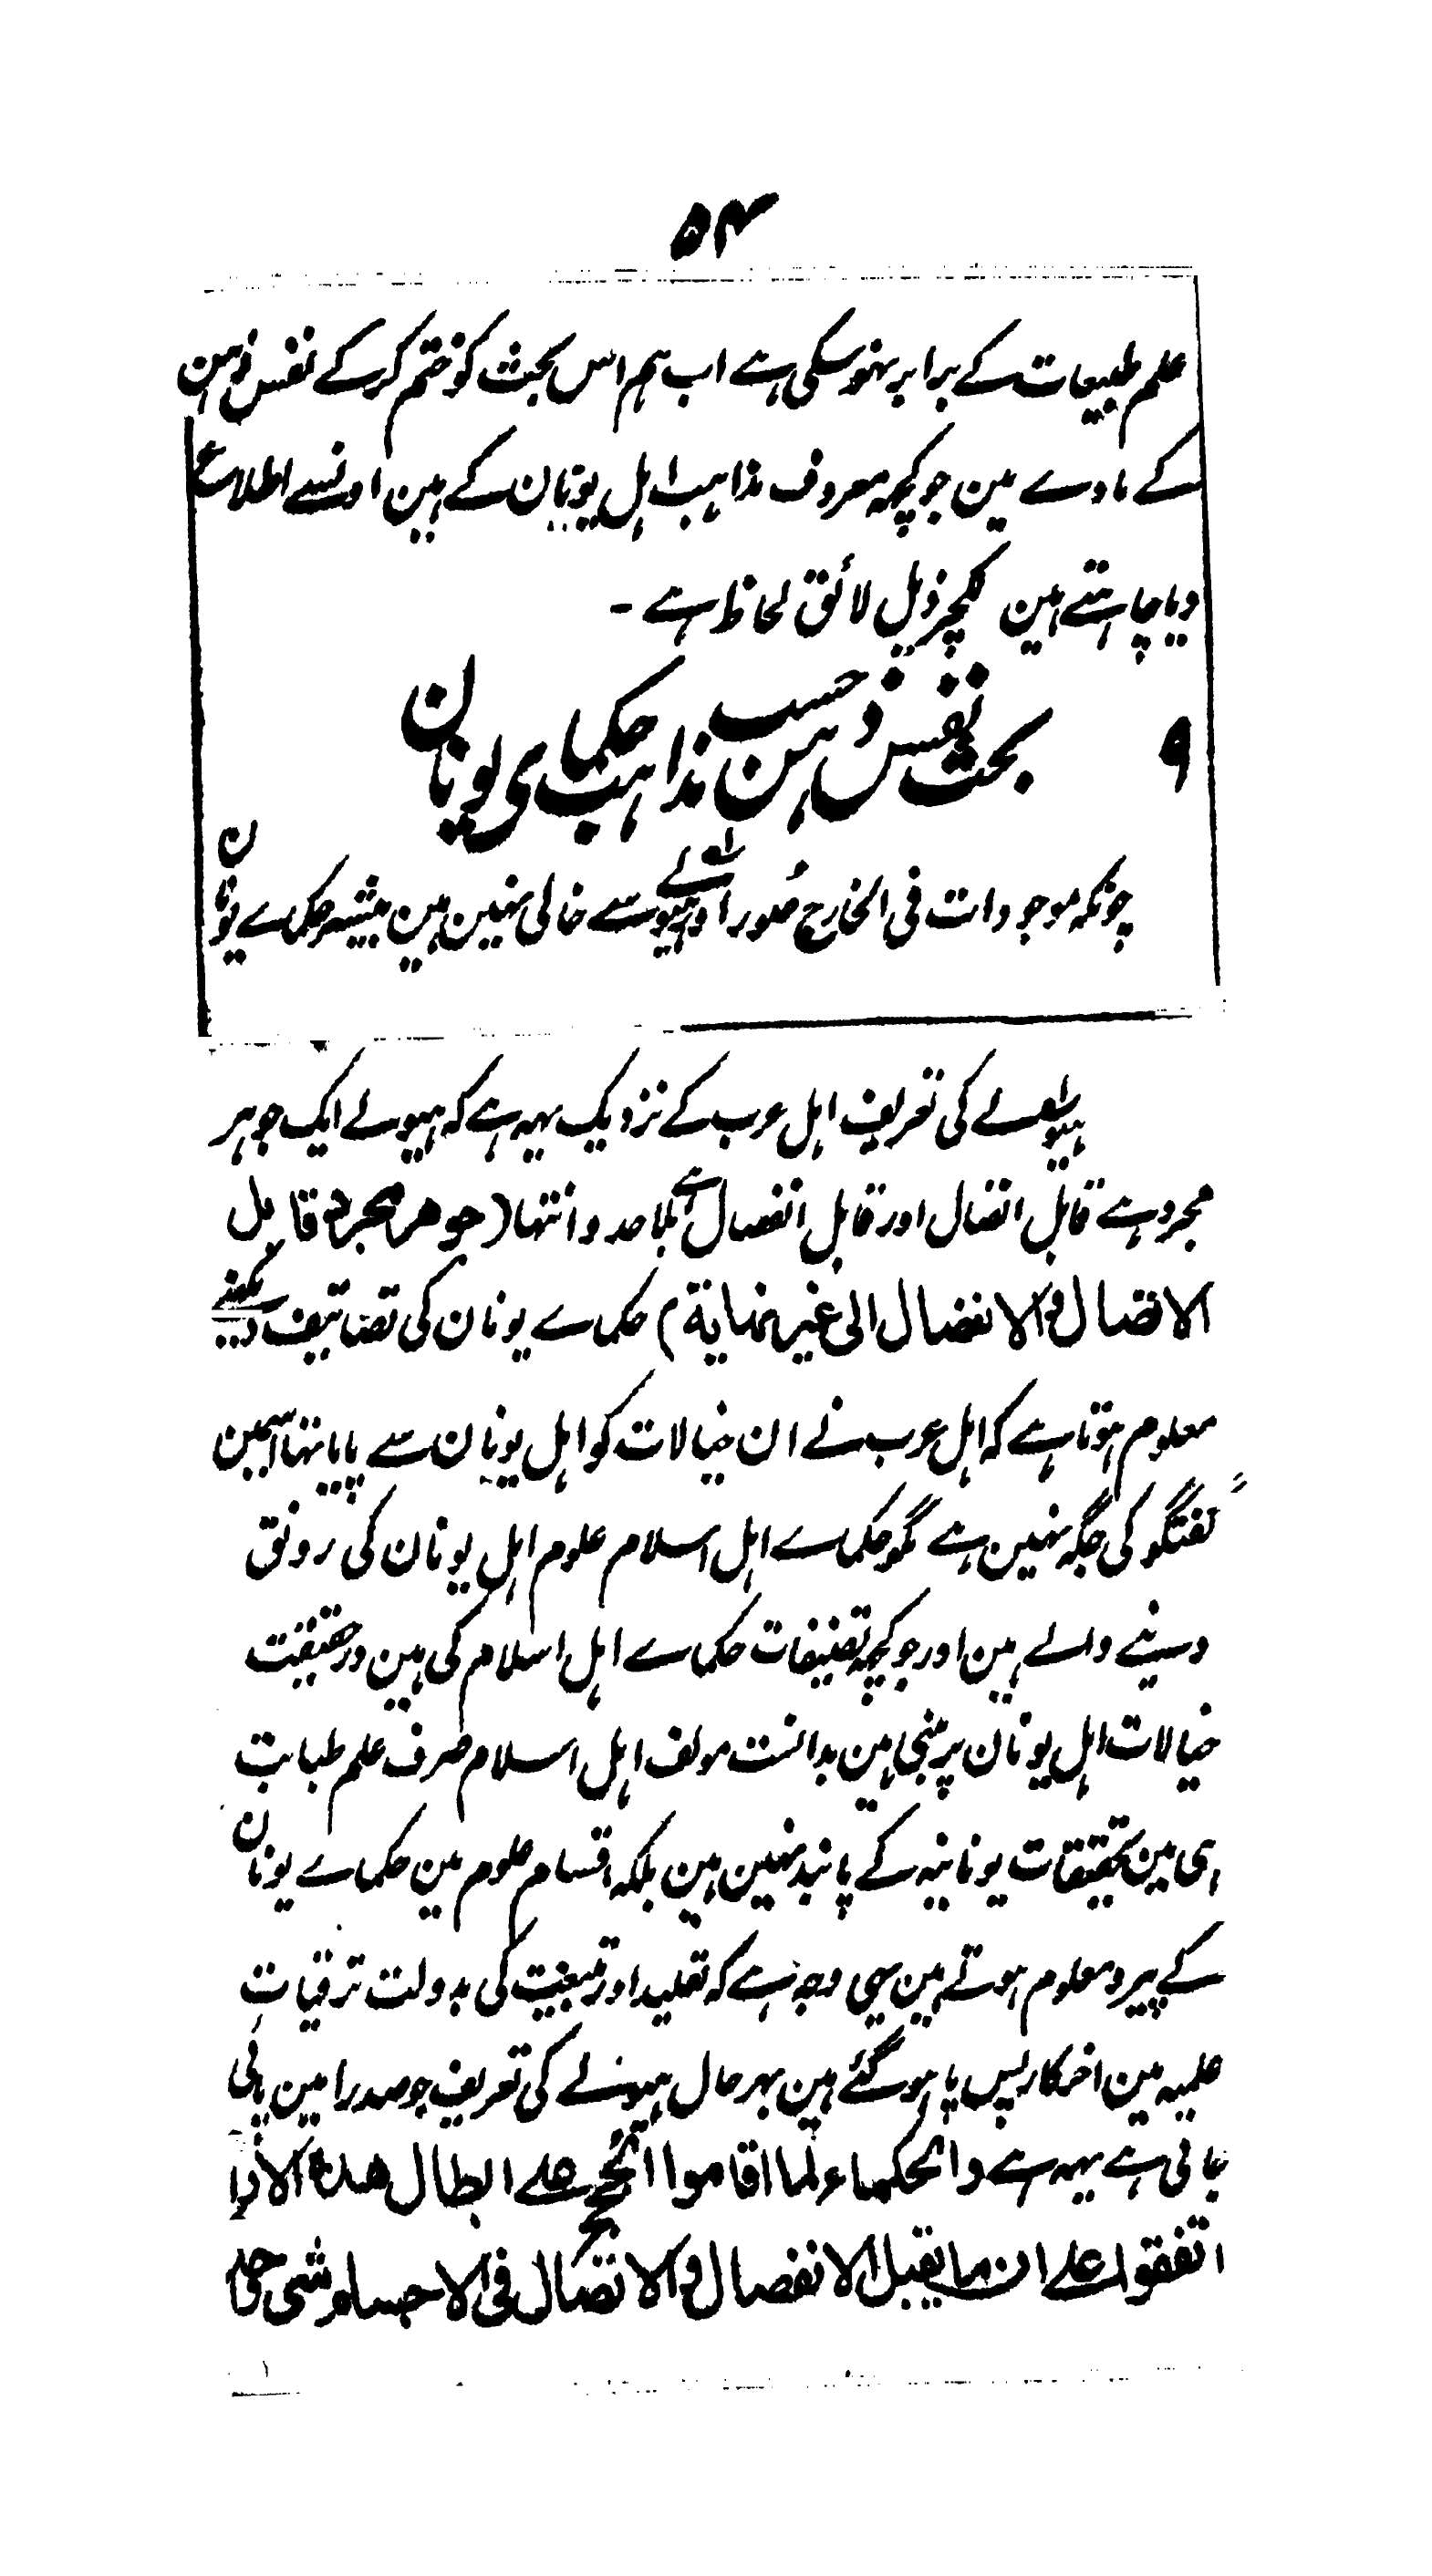 ۵۴
علم طبیعات کے برابر نہو سکی ہے اب ہم اس بحث کو ختم کر کے نفس ذہن
کے مادے مین جو کچہ معروف مذاہب اہل یونان کے ہین اونسے اطلاع
دیا چاہتے ہین لکچر ذیل لائق لحاظ ہے -
۹ بحث نفس ذہن حسب مذاہب حکمای یونان
چونکہ موجودات فی الخارج صُور اور ہیولے سے خالی نہین ہین بیشتر حکماے یونان
ہیولے کی تعریف اہل عرب کے نزدیک یہہ ہے کہ ہیولے ایک جوہر
مجرد ہے قابل اتصال اور قابل انفصال ہے بلا حد و انتہا (جوهر مجرد قابل
الاتصال والانفصال الی غیر نهایة) حکماے یونان کی تصانیف دیکھنے سے
معلوم ہوتا ہے کہ اہل عرب نے ان خیالات کو اہل یونان سے پایا تہا اسمین
گفتگو کی جگہ نہین ہے گو حکماے اہل اسلام علوم اہل یونان کی رونق
دینے والے ہین اور جو کچہ تصنیفات حکماے اہل اسلام کی ہین درحقیقت
خیالات اہل یونان پر مبنی ہین بدانست مولف اہل اسلام صرف علم طبابت
ہی مین تحقیقات یونانیہ کے پابند نہین ہین بلکہ اقسام علوم مین حکماے یونان
کے پیرو معلوم ہوتے ہین یہی وجہ ہے کہ تقلید اور تبعیت کی بدولت ترقیات
علمیہ مین اخرکار پس پا ہو گئے ہین بہر حال ہیولے کی تعریف جو صدرا مین پائی
جاتی ہے یہہ ہے والحکماء لما اقاموا الحجج علے ابطال هذه الآراء
اتفقوا علے ان ما یقبل الانفصال والاتصال فی الاجسام شی